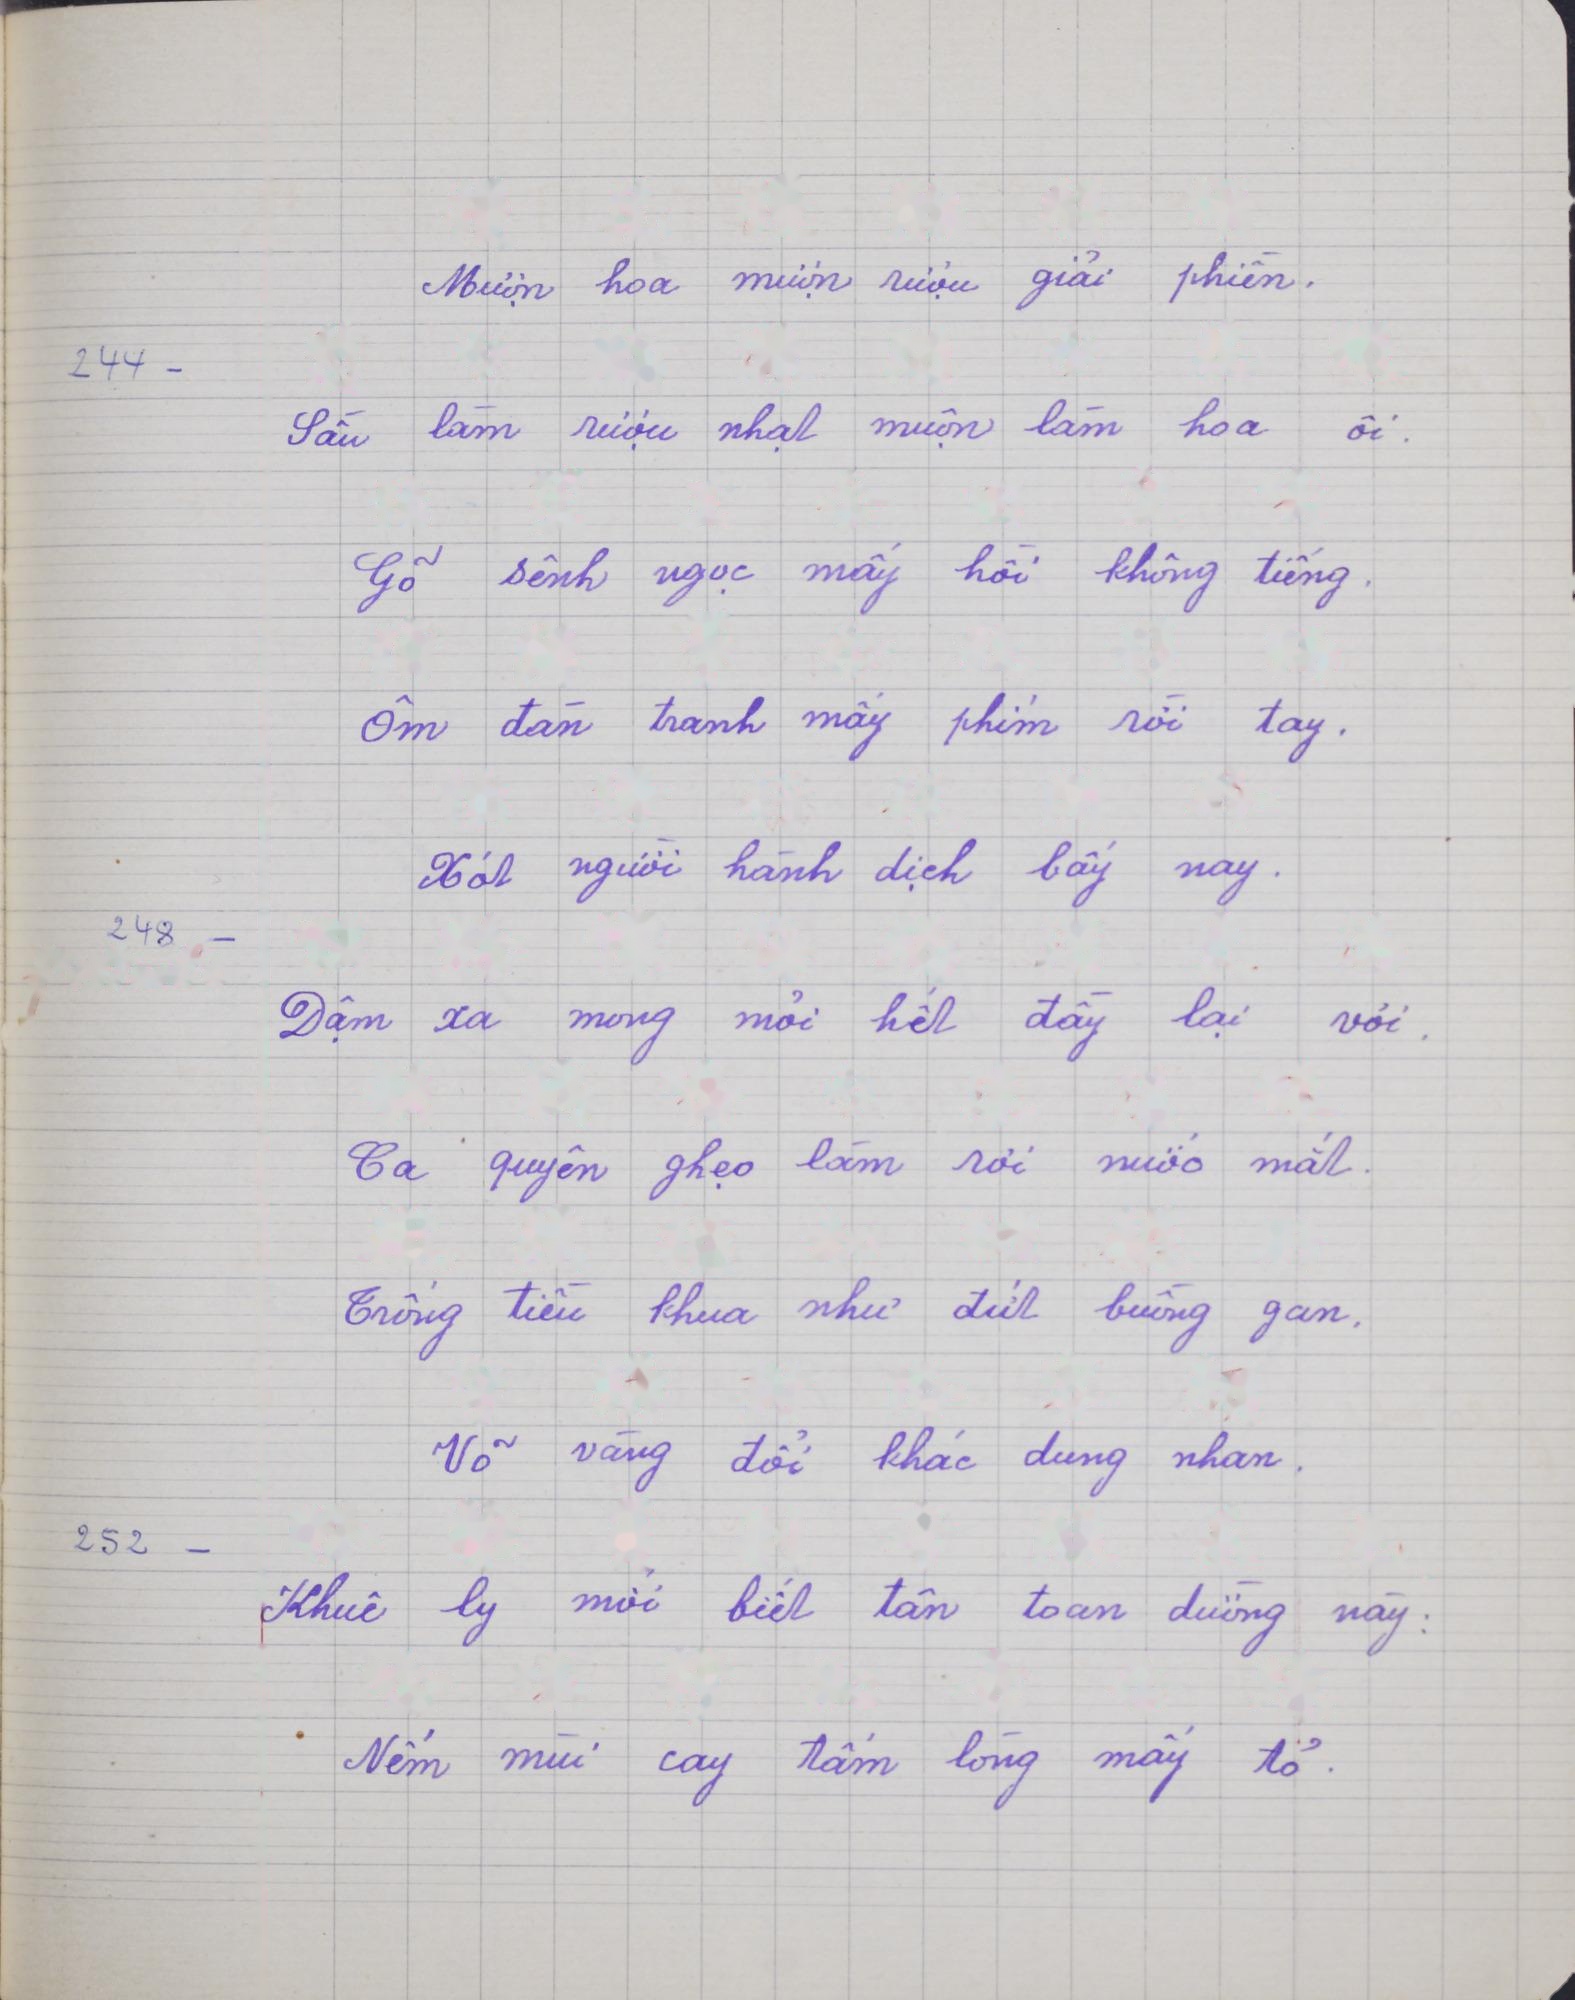 Mượn hoa mượn rượu giải phiền.
244 -
Sầu làm rượu nhạt muộn làm hoa ôi.
Gõ sênh ngọc mấy hồi không tiếng.
Ôm đàn tranh mấy phím rời tay.
Xót người hành dịch bấy nay.
248 -
Dậm xa mong mỏi hết đầy lại vơi.
Ca quyên ghẹo làm rơi nước mắt.
Trống tiều khua như đứt buồng gan.
Võ vàng đổi khác dung nhan.
252 -
Khuê ly mới biết tân toan dường này:
Nếm mùi cay tấm lòng mấy tỏ.